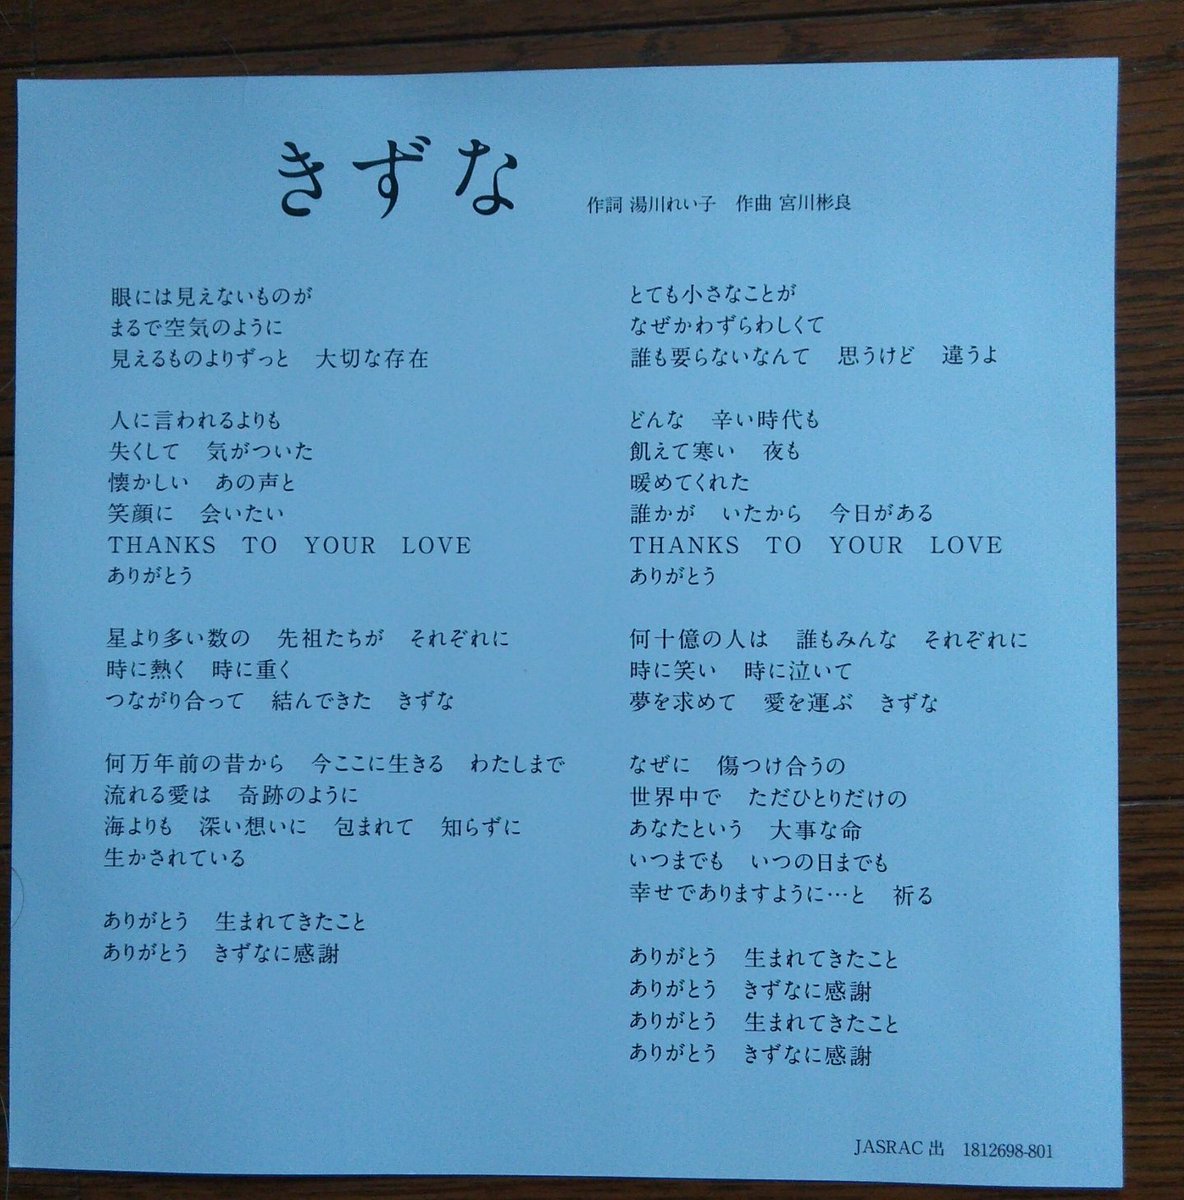 きずな
作詞 湯川れい子　作曲 宮川彬良
眼には見えないものが
まるで空気のように
見えるものよりずっと　大切な存在
人に言われるよりも
失くして　気がついた
懐かしい　あの声と
笑顔に　会いたい
THANKS　TO　YOUR　LOVE
ありがとう
星より多い数の　先祖たちが　それぞれに
時に熱く　時に重く
つながり合って　結んできた　きずな
何万年前の昔から　今ここに生きる　わたしまで
流れる愛は　奇跡のように
海よりも　深い想いに　包まれて　知らずに
生かされている
ありがとう　生まれてきたこと
ありがとう　きずなに感謝
とても小さなことが
なぜかわずらわしくて
誰も要らないなんて　思うけど　違うよ
どんな　辛い時代も
飢えて寒い　夜も
暖めてくれた
誰かが　いたから　今日がある
THANKS　TO　YOUR　LOVE
ありがとう
何十億の人は　誰もみんな　それぞれに
時に笑い　時に泣いて
夢を求めて　愛を運ぶ　きずな
なぜに　傷つけ合うの
世界中で　ただひとりだけの
あなたという　大事な命
いつまでも　いつの日までも
幸せでありますように…と　祈る
ありがとう　生まれてきたこと
ありがとう　きずなに感謝
ありがとう　生まれてきたこと
ありがとう　きずなに感謝
JASRAC 出　1812698-801